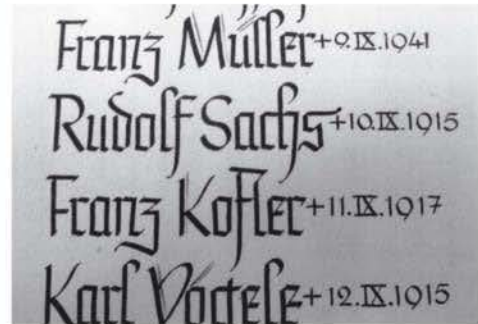 Franz Müller +9.IX.1941
Rudolf Sachs +10.IX.1915
Franz Kofler +11.IX.1917
Karl Vögtele +12.IX.1915